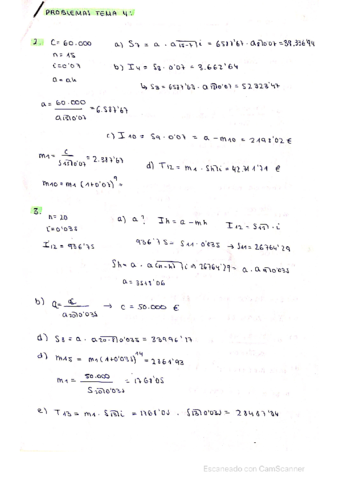 PROBLEMAS TEMA 4:
2. C=60.000 a) S7 = a · a15-7|i = 6587'67 · a8|0'07 = 39.336'94
n=15 b) I4 = S3 · 0'07 = 3.662'64
i=0'07
↳ S3 = 6587'63 · a12|0'07 = 52323'47
a = 60.000 / a15|0'07 = 6.587'67
c) I10 = S9 · 0'07 = a - m10 = 2198'02 €
m1 = C / S15|0'07 = 2.387'67
d) T12 = m1 · Sh|i = 42.711'71 €
m10 = m1 (1+0'07)^9 =
3.
n=20 a) a? Ih = a - mh I12 = S11 · i
i=0'035
I12 = 936'75 936'75 = S11 · 0'035 → S11 = 26764'29
Sh = a · a(n-h)|i → 26764'29 = a · a9|0'035
a = 3518'06
b) a = C / a20|0'035 → C = 50.000 €
d) S8 = a · a20-8|0'035 = 33996'17
d) m15 = m1 (1+0'035)^14 = 2861'93
m1 = 50.000 / S20|0'035 = 1768'05
e) T13 = m1 · S13|i = 1768'05 · S13|0'035 = 28487'34
Escaneado con CamScanner